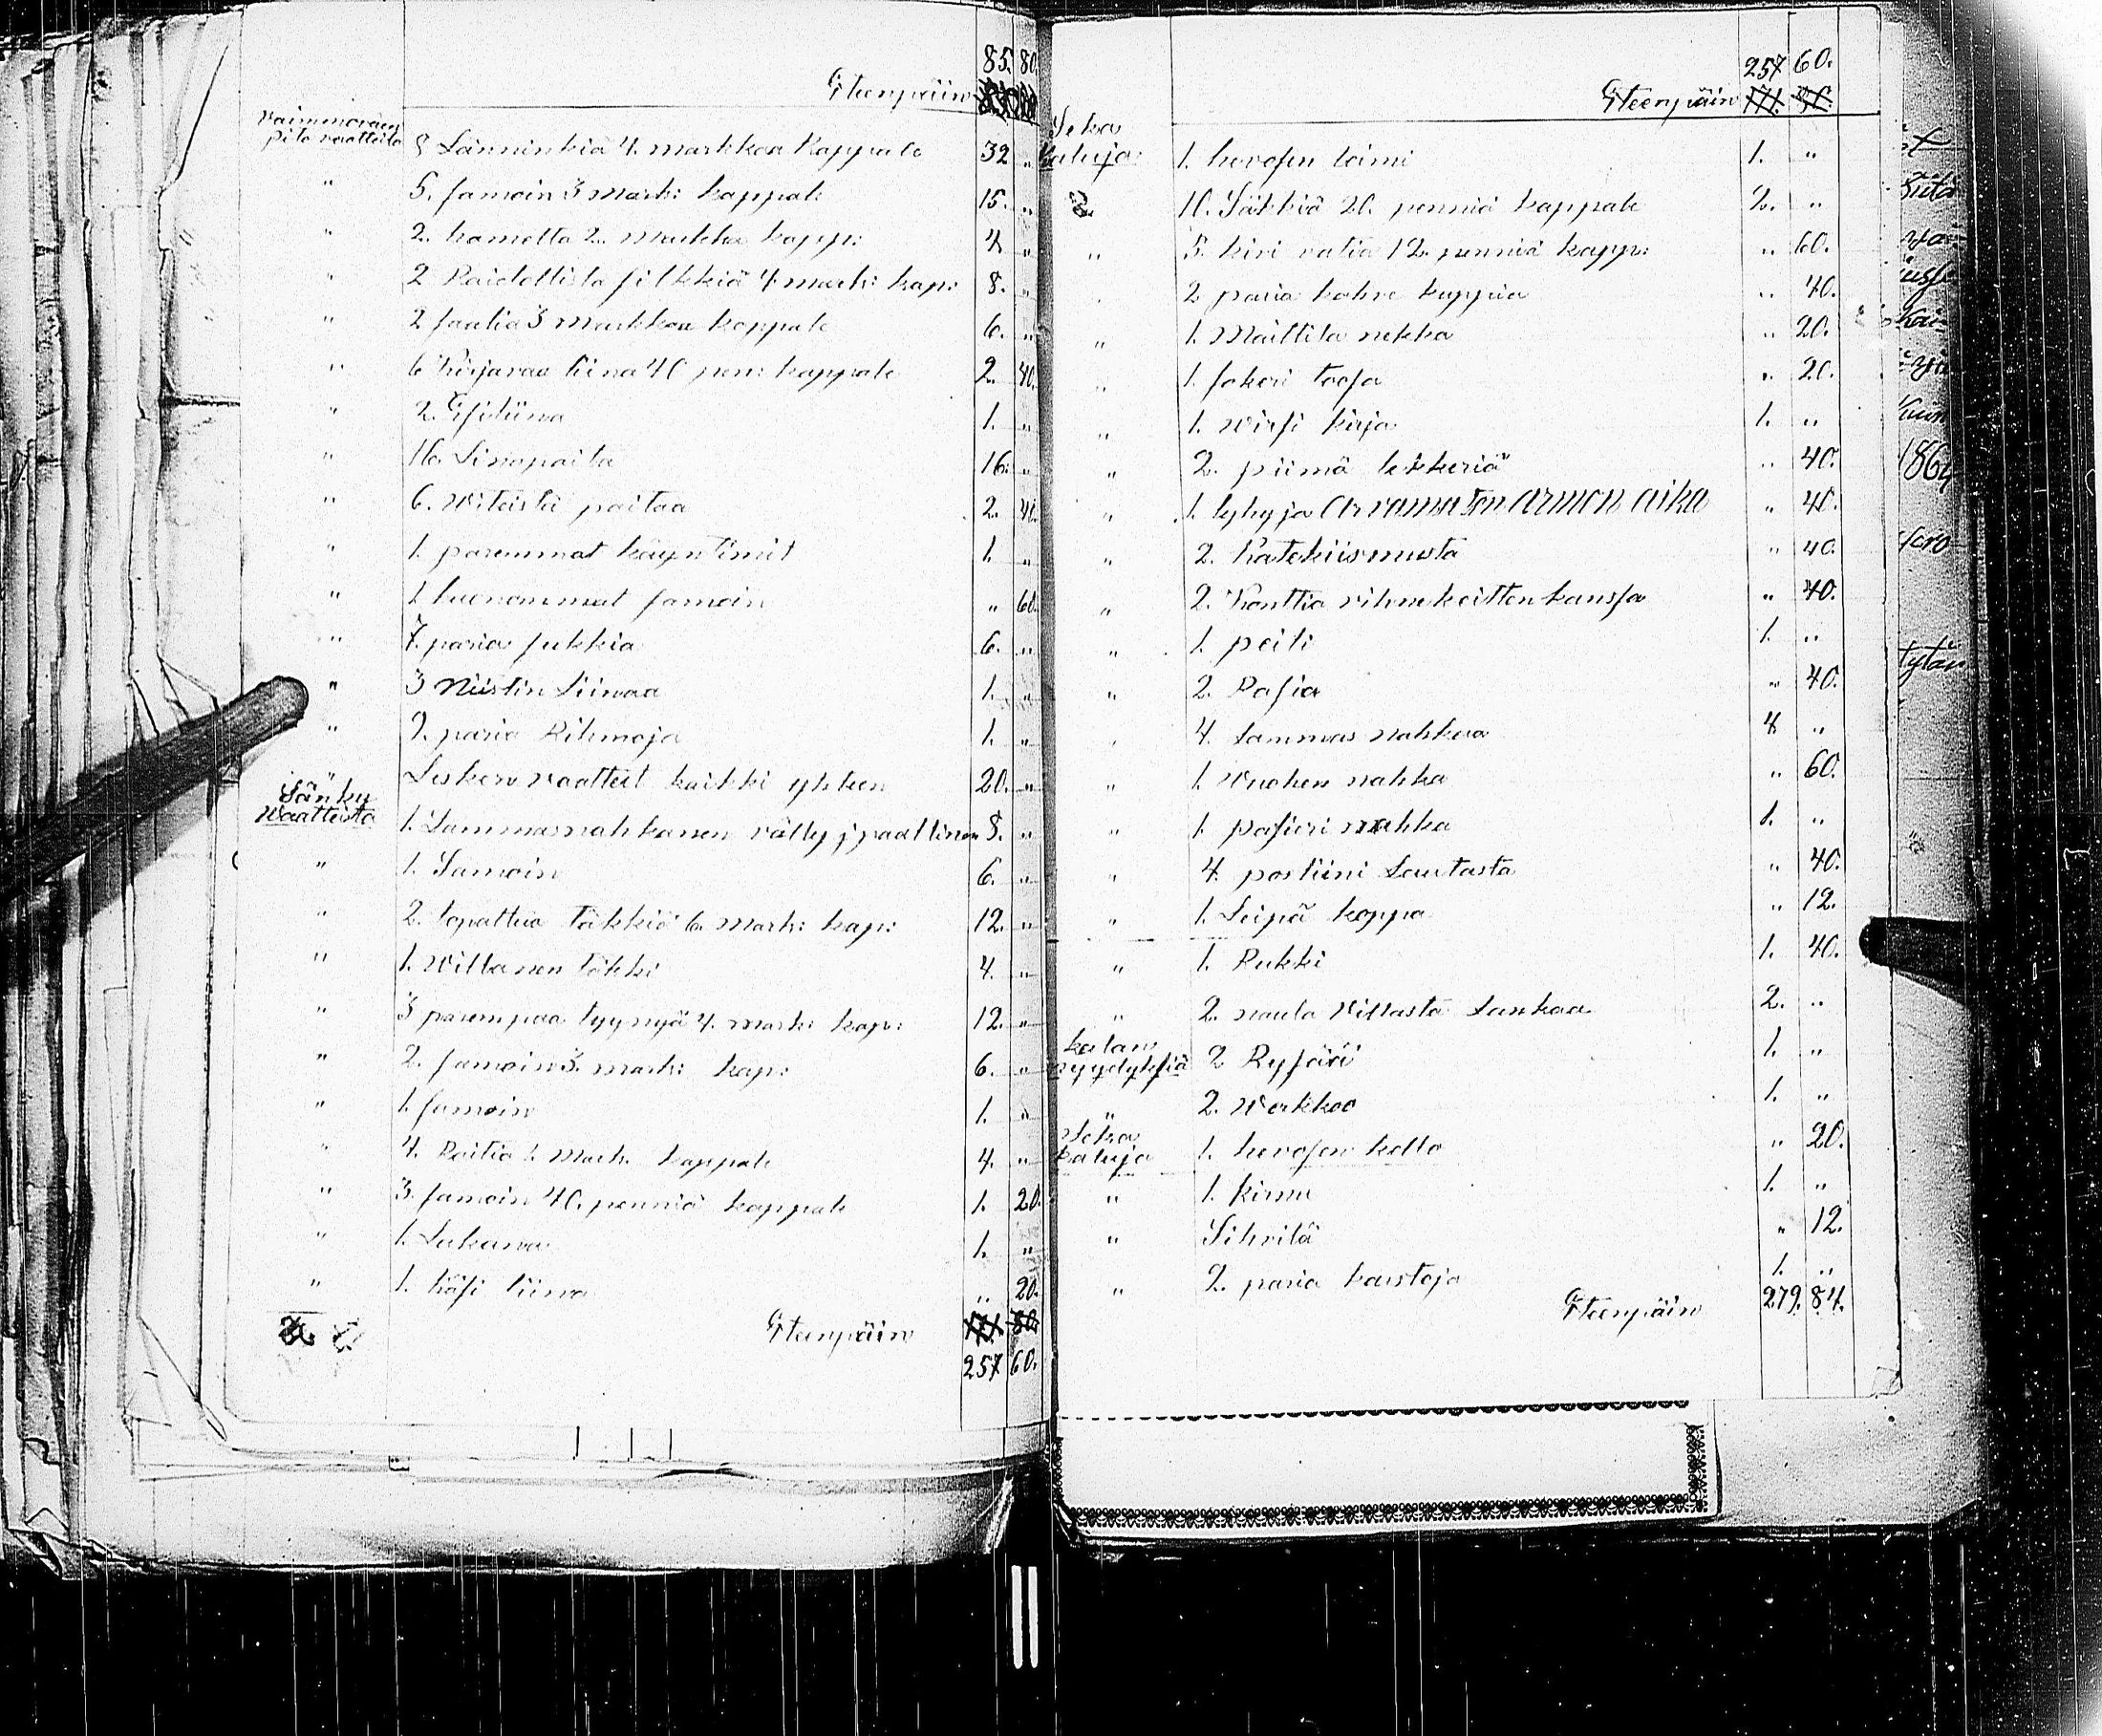 85. 80.
Eteenpäin
vaimmoväen
pito vaatteita 8 Länninkiä 4. markkaa Kappale 32 „
„ 5. samoin 3 mark: kappale 15. „
„ 2. hametta 2. markka kapp: 4 „
„ 2 Raidallista silkkiä 4 mark: kap: 8. „
„ 2 saalia 3 markkaa kappale 6. „
„ 6 Kirjavaa liina 40 pen: kappale 2. 40.
„ 2. Esiliina 1. „
„ 16. Linapaita 16. „
„ 6. paitaa 2. 40.
„ 1. paremmat käyntimit 1. „
„ 1. huonommat samoin „ 60.
„ 7. paria sukkia 6. „
„ 3 Niistin Liinaa 1. „
„ 2. paria Rihmoja 1. „
Lesken vaatteet kaikki yhteen 20. „
Sänky
Waatteita 1. Lammasnahkanen välly j: paallinen 8. „
„ 1. Samoin 6. „
„ 2. topattua täkkiä 6. mark: kap: 12. „
„ 1. Willanen täkki 4. „
„ 3 parempaa tyynyä 4. mark: kap: 12. „
„ 2. samoin 3. mark: kap: 6. „
„ 1. samoin 1. „
„ 4. Raitia 1. Mark. kappale 4. „
„ 3. samoin 40. penniä kappale 1. 20.
„ 1. Lakana 1. „
„ 1. käsi liina „ 20.
Eteenpäin
257 60.
257 60.
Eteenpäin
Seka
kaluja 1. hevosen loimi 1. „
10. Säkkiä 20. penniä kappale 2. „
„ 5. kiri vatia 12. penniä kapp: „ 60.
2 paria kahve kuppia „ 40.
„ 1. nekka „ 20.
„ 1. sokeri toosa „ 20.
„ 1. Wirsi kirja 1. „
„ 2. piimä lekkeriä „ 40.
„ 1. lyhy ja Arvamaton armon aika „ 40.
„ 2. Katekiismusta „ 40.
„ 2. Konttia kanssa „ 40.
„ 1. peili 1. „
„ 2. Rasia „ 40.
„ 4. Lammas nahkaa 4 „
„ 1. Wuohen nahka „ 60.
„ 1. pasuri nahka 1. „
„ 4. posliini Lautasta „ 40.
„ 1. Leipä koppa „ 12.
„ 1. Rukki 1. 40.
„ 2. naula Villasta Lankaa 2. „
kalan
pyydyksiä 2 Rysää 1. „
„ 2. Werkkoo 1. „
Seka
kaluja 1. hevosen kello „ 20.
„ 1. kirnu 1. „
„ Sihvilä „ 12.
„ 2. paria karstoja 1. „
Eteenpäin 279. 84.
1864